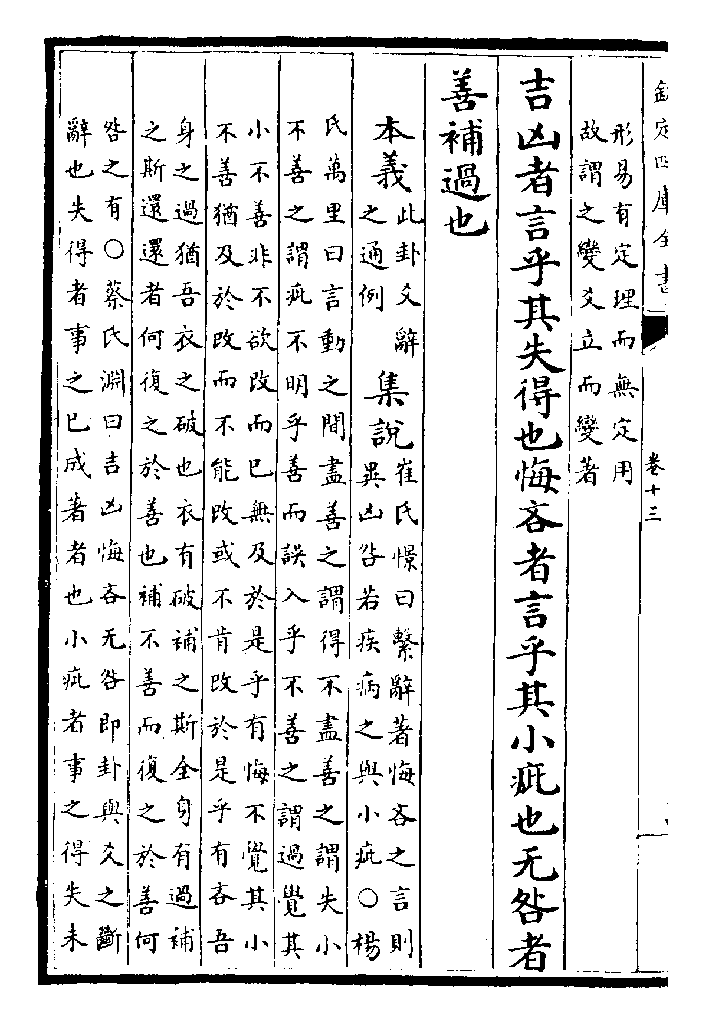 欽定四庫全書
卷十三
形易有定理而無定用
故謂之變爻立而變著
吉凶者言乎其失得也悔吝者言乎其小疵也无咎者
善補過也
本義
此卦爻辭
之通例
集說
崔氏憬曰繫辭著悔吝之言則
異凶咎若疾病之與小疵○楊
氏萬里曰言動之間盡善之謂得不盡善之謂失小
不善之謂疵不明乎善而誤入乎不善之謂過覺其
小不善非不欲改而已無及於是乎有悔不覺其小
不善猶及於改而不能改或不肯改於是乎有吝吾
身之過猶吾衣之破也衣有破補之斯全身有過補
之斯還還者何復之於善也補不善而復之於善何
咎之有○蔡氏淵曰吉凶悔吝无咎即卦與爻之斷
辭也失得者事之已成著者也小疵者事之得失未